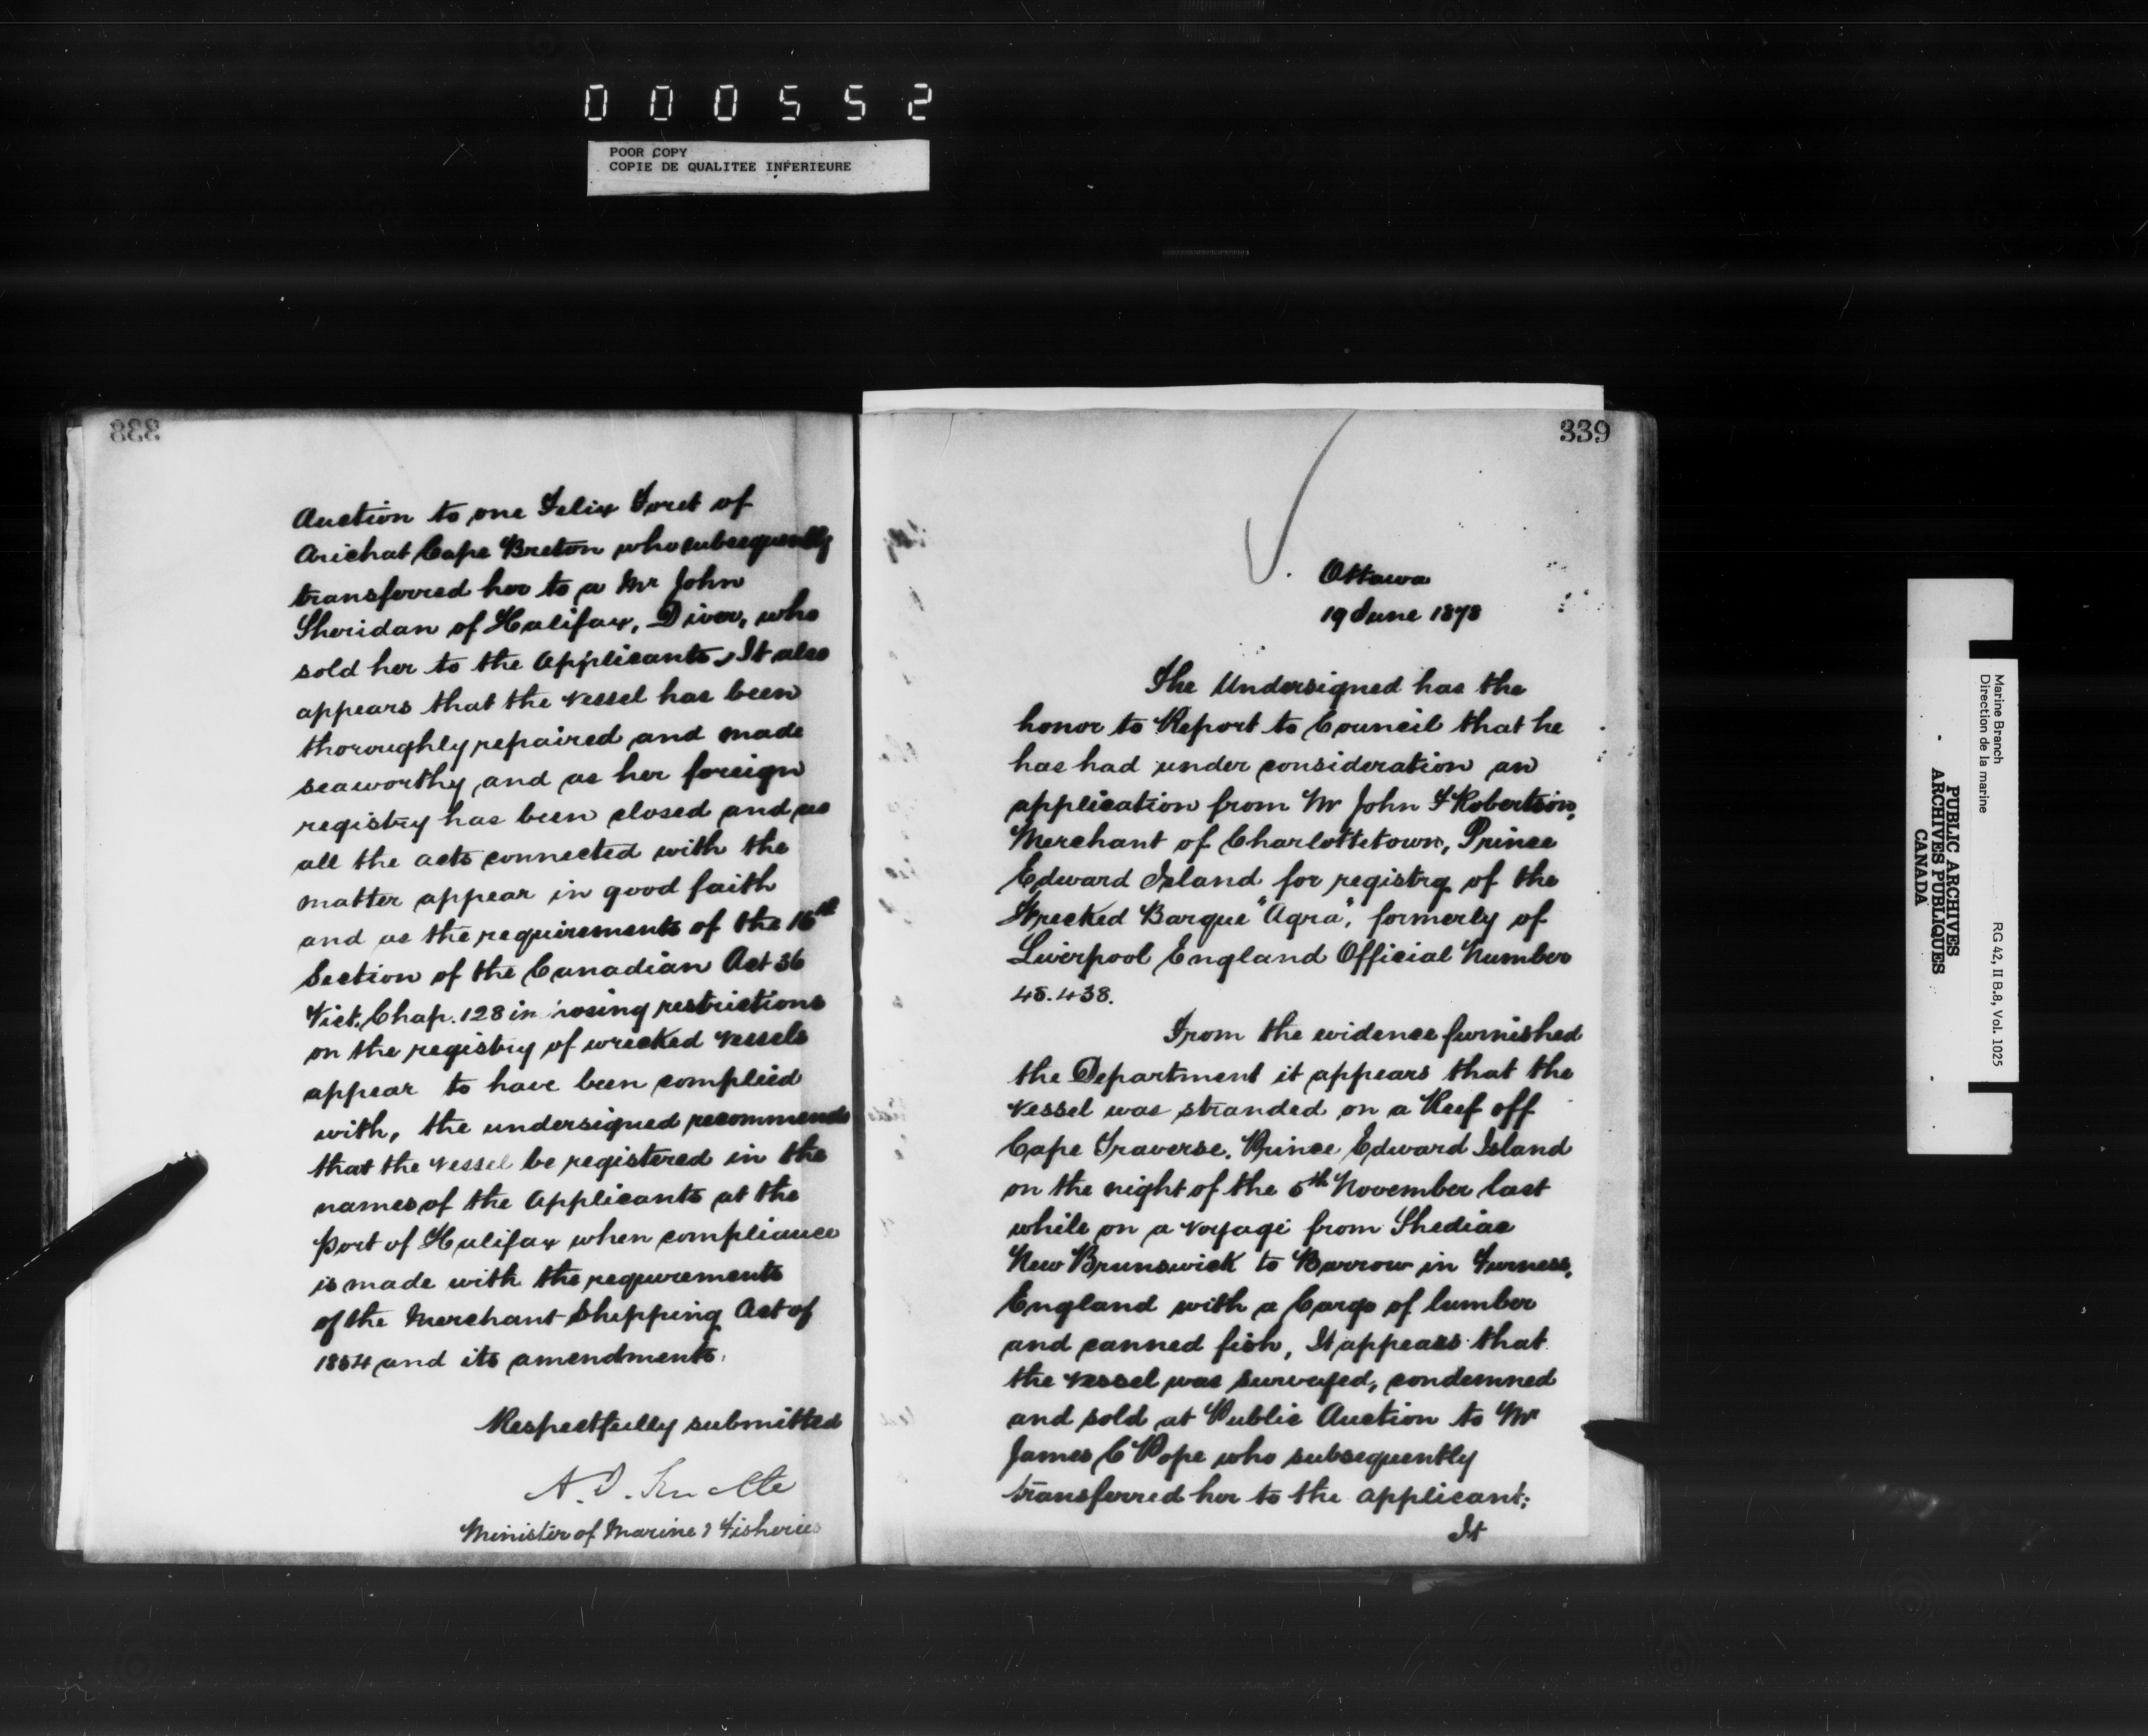 000552
POOR COPY
COPIE DE QUALITEE INFERIEURE
338
Auction to one Felix Foret of
Arichat Cape Breton who subsequently
transferred her to a Mr John
Sheridan of Halifax, Diver, who
sold her to the Applicants, It also
appears that the vessel has been
thoroughly repaired and made
seaworthy and as her foreign
registry has been closed and as
all the acts connected with the
matter appear in good faith
and as the requirements of the 16th
Section of the Canadian Act 36
Vict. Chap. 128 imposing restrictions
on the registry of wrecked vessels
appear to have been complied
with, the undersigned recommends
that the vessel be registered in the
names of the Applicants at the
Port of Halifax when compliance
is made with the requirements
of the Merchant Shipping Act of
1854 and its amendments.
Respectfully submitted
A. J. Smith
Minister of Marine & Fisheries
339
Ottawa
19 June 1878
The Undersigned has the
honor to Report to Council that he
has had under consideration an
application from Mr John F Robertson,
Merchant of Charlottetown, Prince
Edward Island for registry of the
Wrecked Barque "Agra", formerly of
Liverpool England Official Number
45.438.
From the evidence furnished
the Department it appears that the
vessel was stranded on a Reef off
Cape Traverse, Prince Edward Island
on the night of the 5th November last
while on a voyage from Shediac
New Brunswick to Barrow in Furness,
England with a Cargo of lumber
and canned fish, It appears that
the vessel was surveyed, condemned
and sold at Public Auction to Mr
James C Pope who subsequently
transferred her to the applicant;
It
Marine Branch
Direction de la marine
RG 42, II B.8, Vol. 1025
PUBLIC ARCHIVES
ARCHIVES PUBLIQUES
CANADA